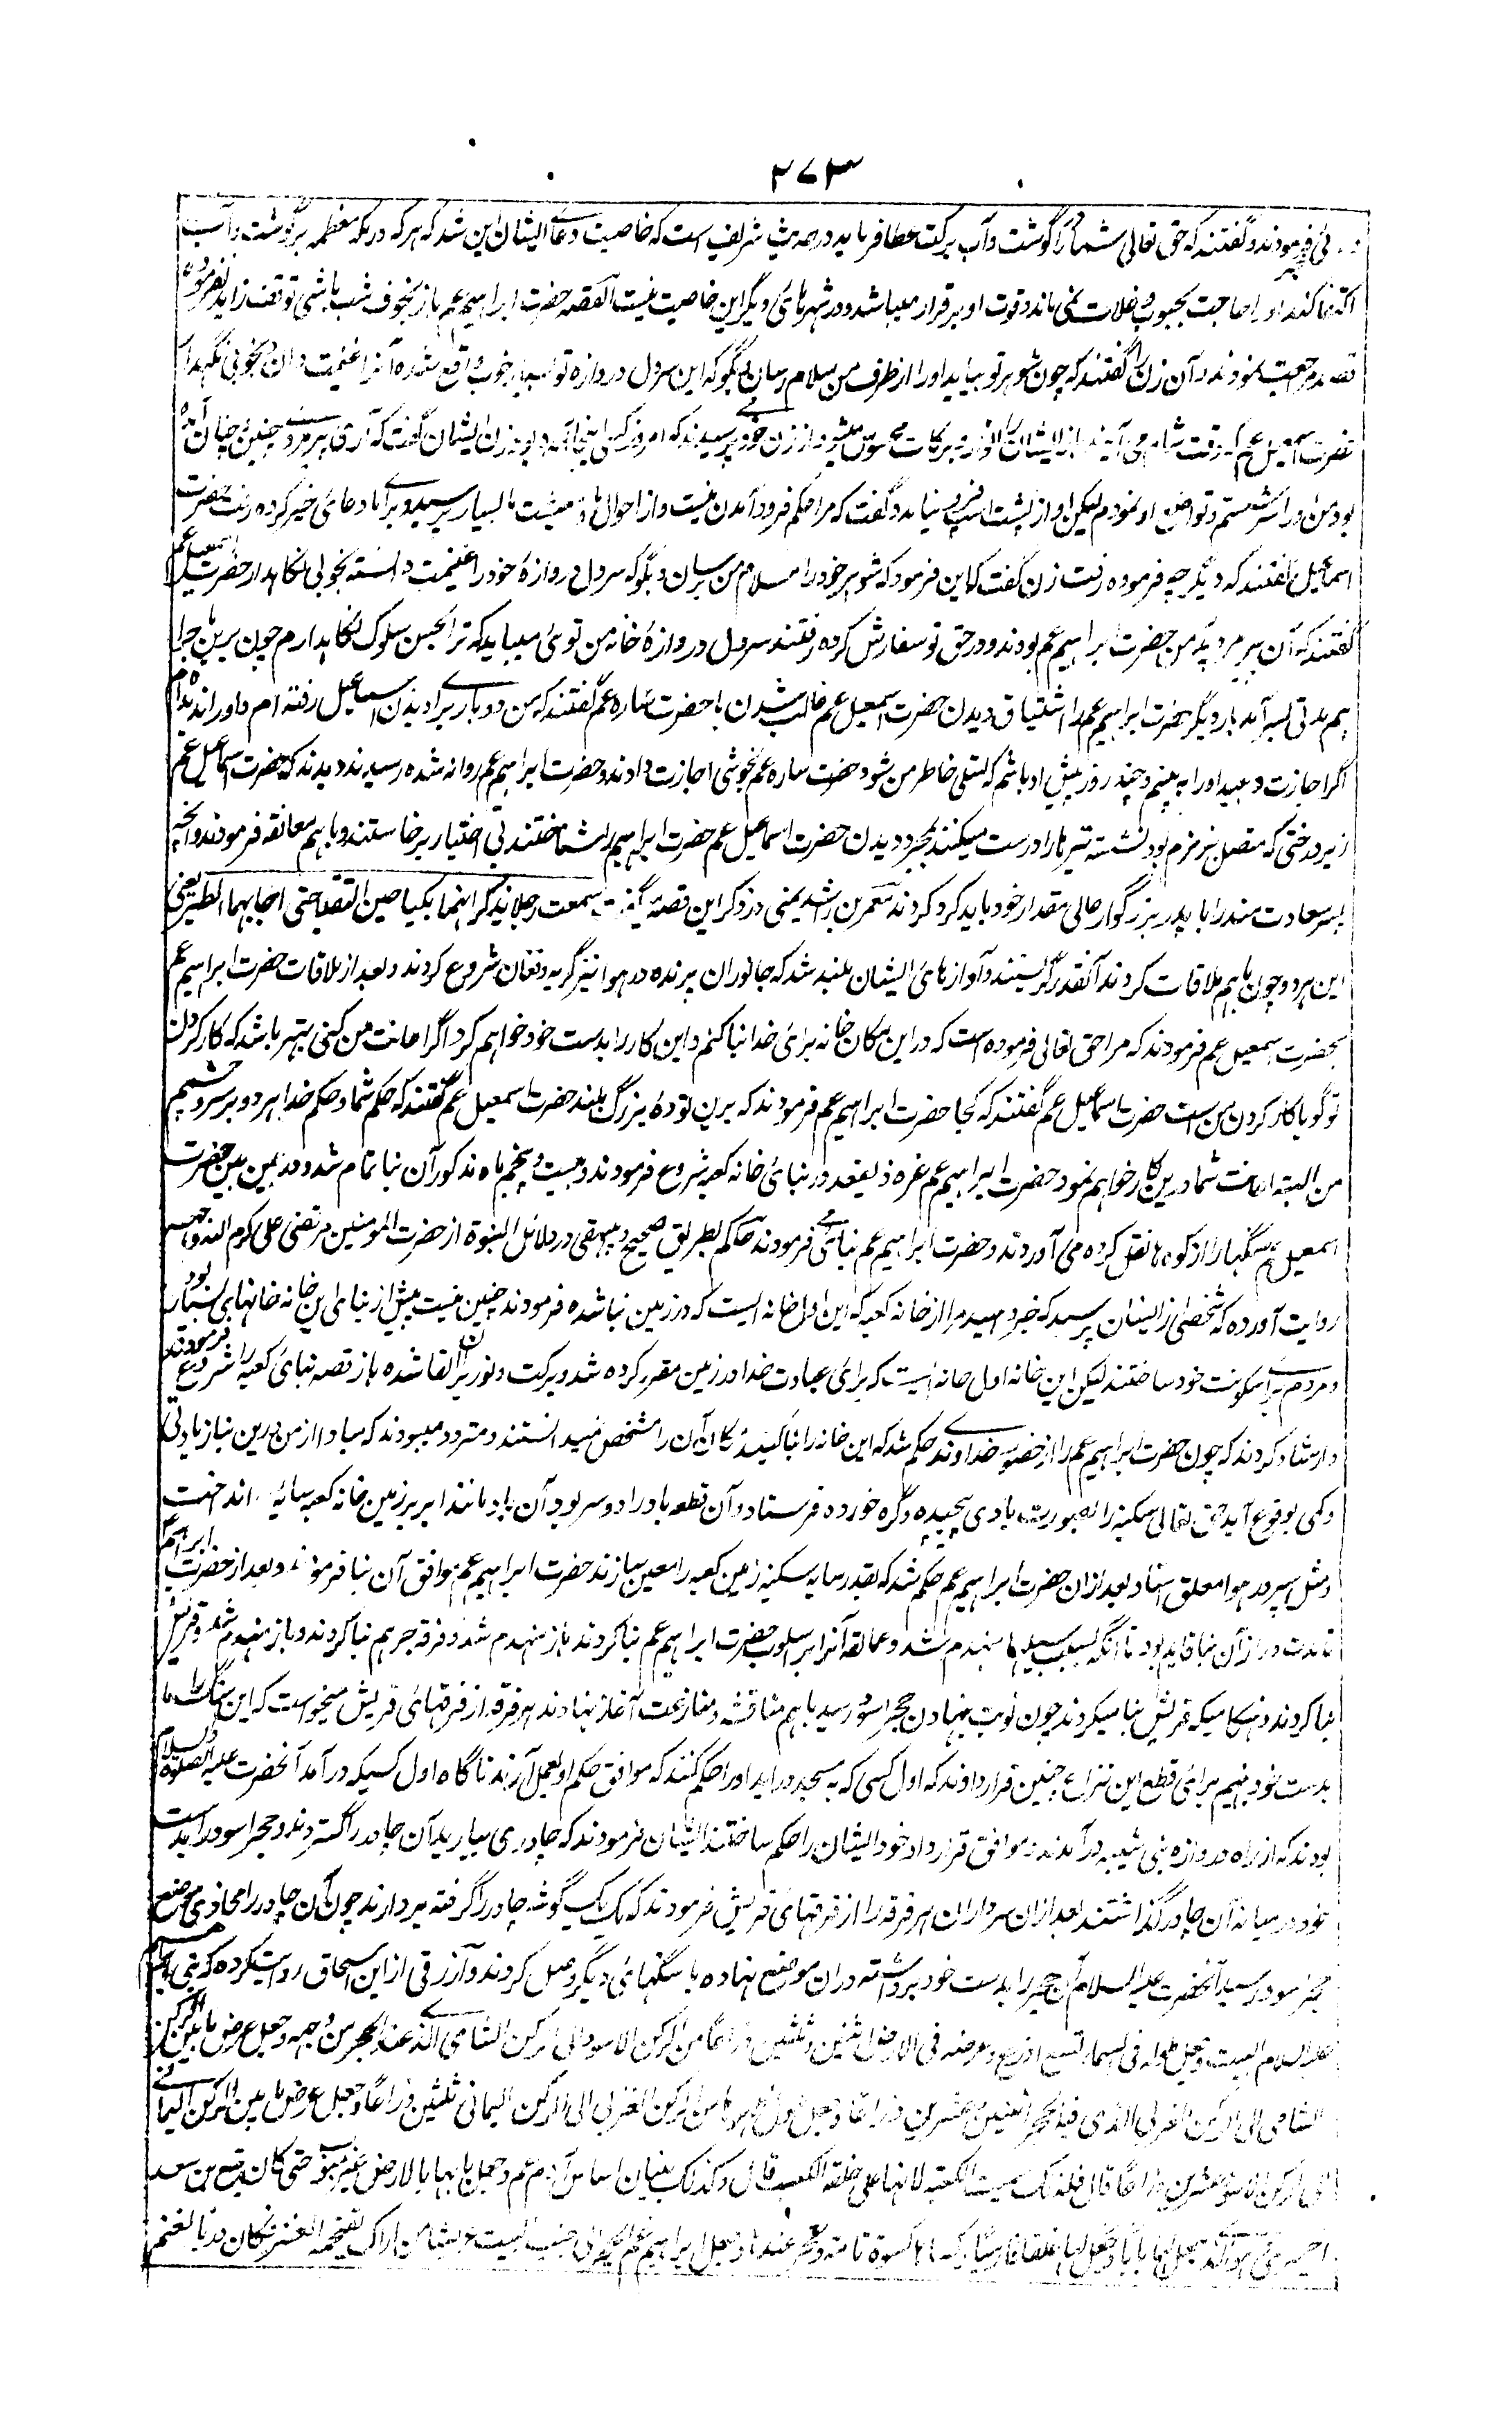 ۲۷۳
فرمودند و گفتند که حق تعالی شما را در گوشت و آب برکت عطا فرماید در حدیث شریف است که خاصیت دعای ایشان این شد که هر که در مکه معظمه بر گوشت و آب
اکتفا کند او را حاجت بحبوب و غلات نمی ماند و قوت او برقرار میباشد و در شهرهای دیگر این خاصیت نیست القصه حضرت ابراهیم عم باز بخوف شب باشی توقف زاید نفرموده
قصد مرجعت نمودند و آن زن را گفتند که چون شوهر تو بیاید او را از طرف من سلام رسان و بگو که این سردل دروازه تو بسیار خوب واقع شده آنرا غنیمت دان و بخوبی نگهدار
حضرت اسمعیل عم که وقت شام می آیند از زن خود پرسیدند که امروز کسی اینجا آمده بود زن ایشان گفت که آری پیرمردی چنین و چنان آمده
بود من او را سر شستم و تواضع او نمودم لیکن او از پشت اسپ فرو نیامد و گفت که مرا حکم فرود آمدن نیست و از احوال ما و معیشت ما بسیار پرسید و برای ما دعای خیر کرده رفت حضرت
اسماعیل گفتند که دیگر چه فرموده رفت زن گفت که این فرمود که شوهر خود را سلام من برسان و بگو که سردل دروازهٔ خود را غنیمت دانسته بخوبی نگاهدار حضرت اسمعیل عم
گفتند که آن پیرمرد پدر من حضرت ابراهیم عم بودند و در حق تو سفارش کرده رفتند سردل دروازهٔ خانه من توئی میباید که ترا بحسن سلوک نگاهدارم چون برین ماجرا
هم مدتی بسر آمد بار دیگر حضرت ابراهیم عم را اشتیاق دیدن حضرت اسمعیل عم غالب شدن با حضرت ساره عم گفتند که من دو بار برای دیدن اسماعیل رفته ام و او را ندیده ام
اگر اجازت دهید او را به بینم و چند روز پیش او باشم که تسلی خاطر من شود حضرت ساره عم بخوشی اجازت دادند و حضرت ابراهیم عم روانه شده رسیدند دیدند که حضرت اسماعیل عم
زیر درختی که متصل زمزم بود نشسته تیرها را درست میکنند بمجرد دیدن حضرت اسماعیل عم حضرت ابراهیم را شناختند بی اختیار برخاستند و باهم معانقه فرمودند و آنچه
پسر سعادت مند را با پدر بزرگوار عالی مقدار خود باید کرد کردند معمر بن راشد یمنی در ذکر این قصه گفت سمعت رجلا یذکر انهما بکیا حین التقیا حتی اجابهما الطیر یعنی
این هر دو چون باهم ملاقات کردند آنقدر گریستند و آوازهای ایشان بلند شد که جانوران پرنده در هوا نیز گریه و فغان شروع کردند و بعد از ملاقات حضرت ابراهیم عم
بحضرت اسمعیل عم فرمودند که مرا حق تعالی فرموده است که در این مکان خانه برای خدا بنا کنم و این کار را بدست خود خواهم کرد اگر اعانت من کنی بهتر باشد که کار کردن
تو گویا کار کردن من است حضرت اسماعیل عم گفتند که کجا حضرت ابراهیم عم فرمودند که برین تودهٔ بزرگ بلند حضرت اسمعیل عم گفتند که حکم شما و حکم خدا هر دو بر سر و چشم
من البته اعانت شما درین کار خواهم نمود حضرت ابراهیم عم غره ذیقعد در بنای خانه کعبه شروع فرمودند و بیست و پنجم ماه مذکور آن بنا تمام شد و در همین بین حضرت
اسمعیل عم سنگها را از کوه ها نقل کرده می آوردند و حضرت ابراهیم عم بنا می فرمودند حاکم بطریق صحیح و بیهقی در دلائل النبوة از حضرت المومنین مرتضی علی کرم الله وجهه
روایت آورده که شخصی از ایشان پرسید که خبر دهید مرا از خانه کعبه که این اول خانه ایست که در زمین بنا شده فرمودند چنین نیست پیش از بنای این خانه خانهای بسیار بود
و مردم برای سکونت خود ساختند لیکن این خانه اول خانه ایست که برای عبادت خدا در زمین مقرر کرده شد و برکت و نور بر آن القا شده باز قصه بنای کعبه را شروع فرمودند
و ارشاد کردند که چون حضرت ابراهیم عم را از حضور خداوندی حکم شد که این خانه را بنا کنید مکان آن را مشخص نمیدانستند و متردد میبودند که مبادا از من درین بنا زیادتی
و کمی بوقوع آید حق تعالی سکینه را بصورت بادی پیچیده و گره خورده فرستاد و آن قطعه باد را دو سر بود آن باد مانند ابر بر زمین خانه کعبه سایه انداخت
و مثل سپر در هوا معلق استاد بعد از آن حضرت ابراهیم عم حکم شد که بقدر سایه سکینه زمین کعبه را معین سازند حضرت ابراهیم عم موافق آن بنا فرمودند و بعد از حضرت ابراهیم
تا مدت دراز آن بنا قایم بود تا آنکه بسبب سیلها منهدم شد و عمالقه آنرا بر اسلوب حضرت ابراهیم عم بنا کردند باز منهدم شد و فرقه جرهم بنا کردند و باز منهدم شد و قریش
بنا کردند و هنگامیکه قریش بنا میکردند چون نوبت نهادن حجر اسود رسید باهم مناقشه و منازعت آغاز نهادند هر فرقه از فرقهای قریش میخواست که این سنگ را ما
بدست خود نهیم برای قطع این نزاع چنین قرار دادند که اول کسی که به مسجد در آید او را حکم کنند که موافق حکم او بعمل آرند ناگاه اول کسیکه در آمد آنحضرت علیه الصلوة والسلام
بودند که از راه دروازه بنی شیبه در آمدند موافق قرارداد خود ایشان را حکم ساختند ایشان فرمودند که چادری بیارید آن چادر را گستردند و حجر اسود را بدست
خود در میانه آن چادر گذاشتند بعد از آن سرداران هر فرقه را از فرقهای قریش فرمودند که یک یک گوشه چادر را گرفته بردارند چون آن چادر را محاذی موضع
حجر اسود رسید آنحضرت علیه السلام آن حجر را بدست خود برداشته در آن موضع نهاده با سنگهای دیگر وصل کردند و ازرقی از ابن اسحاق روایت کرده که بنی ابراهیم
علیه السلام البیت وجعل طوله فی السماء تسع اذرع وعرضه فی الارض اثنین وثلثین ذراعا من الرکن الاسود الی الرکن الشامی الذی عند الحجر من وجهه وجعل عرض ما بین الرکن
الشامی الی الرکن الغربی الذی فیه الحجر اثنین وعشرین ذراعا وجعل طول ظهرها من الرکن الغربی الی الرکن الیمانی ثلثین ذراعا وجعل عرض ما بین الرکن الیمانی
الی الرکن الاسود عشرین ذراعا قال فلذلک سمیت الکعبة لانها علی خلقة الکعب قال وکذلک بنیان اساس آدم عم وجعل بابها بالارض غیر مبوب حتی کان تبع بن سعد
الحمیری هو الذی جعل لها بابا وجعل لها غلقا فارسیا وکسوة تامة ونحر عندها وجعل ابراهیم عم الحجر الی جنب البیت عریشا من اراک تقتحمه العنز فکان زربا لغنم